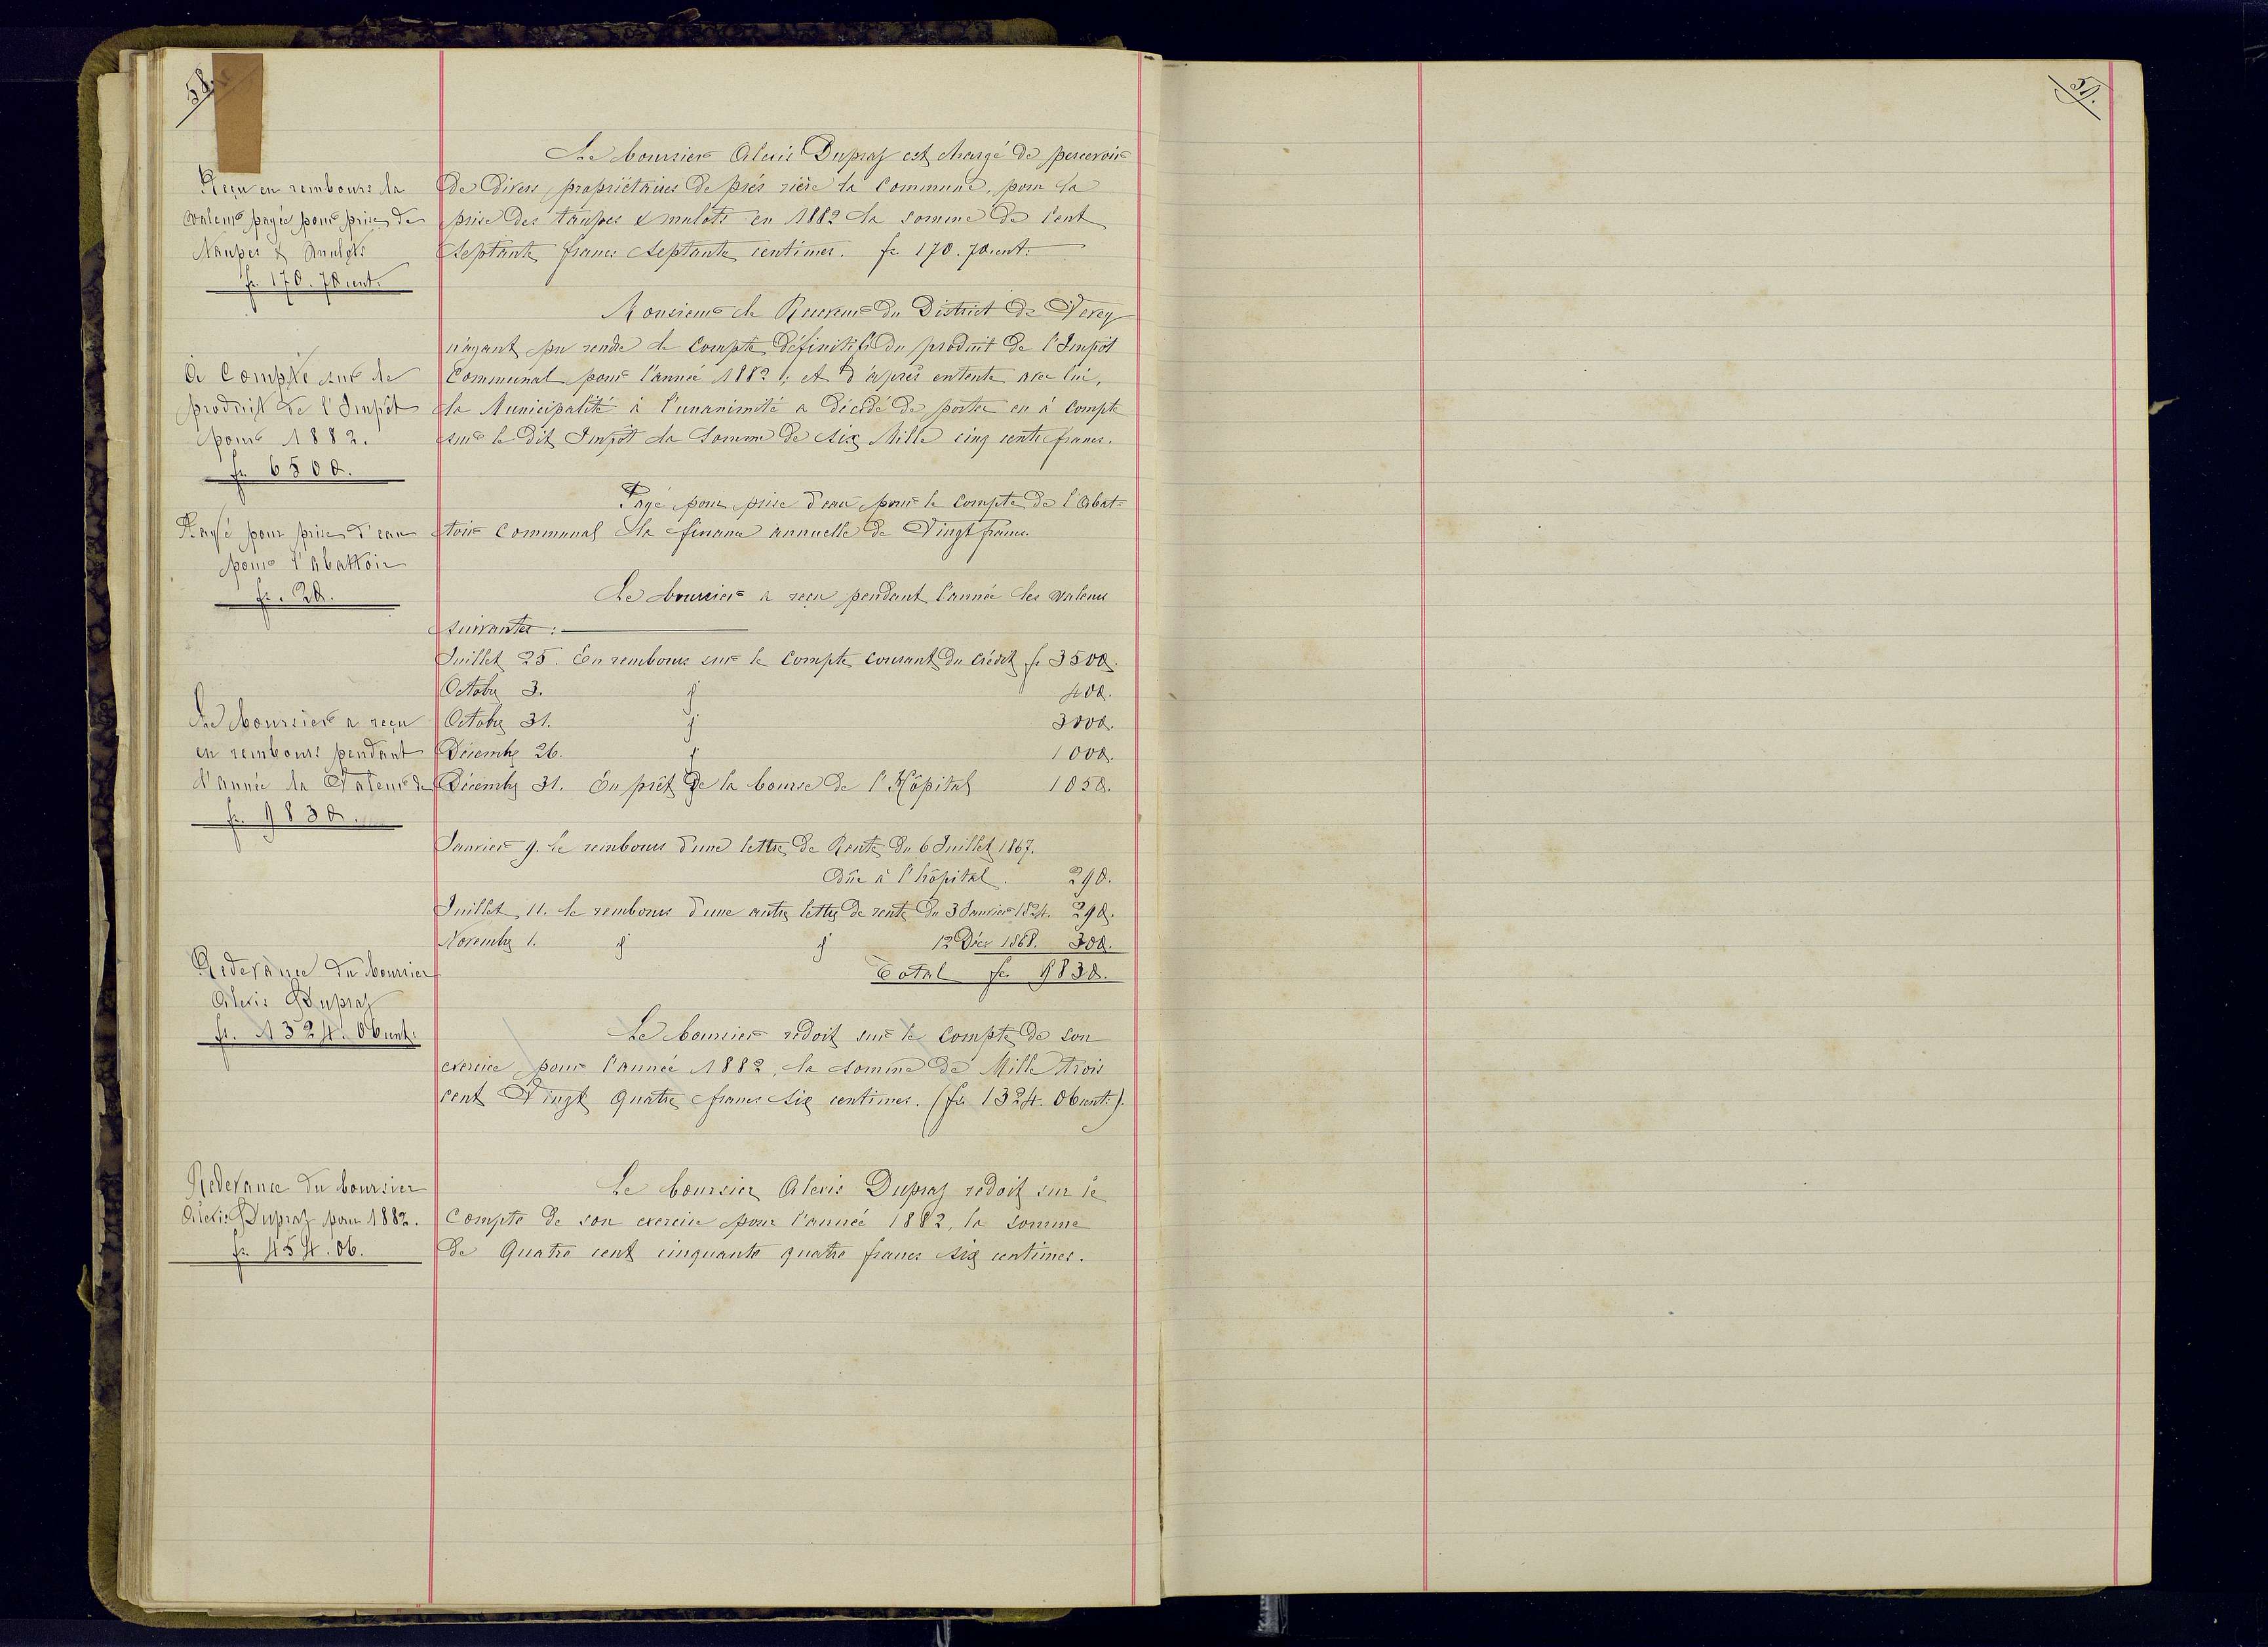 58.
Reçu en rembours la
valeur payée pour prise de
Taupes & Mulots
fr. 170. 70 cent.
Le boursier Alexis Dupraz est chargé de percevoir
de divers propriétaires de prés rière la Commune, pour la
prise des taupes & mulots en 1882 la somme de Cent
Septante francs Septante centimes. fr. 170. 70 cent.
A Compte sur le
produit de l'Impôt
pour 1882.
fr. 6500.
Monsieur le Receveur du District de Vevey
n'ayant pu rendre le Compte définitif du produit de l'Impôt
Communal pour l'année 1882 ; et d'après entente avec lui,
la Municipalité à l'unanimité a décidé de porter en à compte
sur le dit Impôt la somme de Six Mille cinq cents francs.
Payé pour prise d'eau
pour l'abattoir
fr. 20.
Payé pour prise d'eau pour le Compte de l'Abat-
toir Communal la finance annuelle de Vingt francs.
Le boursier a reçu
en rembours pendant
l'année la Valeur de
fr. 9830.
Le boursier a reçu pendant l'année les valeurs
suivantes :
Juillet 25. En rembours sur le Compte Courant du Crédit fr 3500.
Octobre 3. " 400.
Octobre 31. " 3000.
Décembre 26. " 1000.
Décembre 31. En prêt de la bourse de l'Hôpital 1050.
Janvier 9. Le rembours d'une lettre de Rente du 6 Juillet 1867.
Due à l'hôpital. 290.
Juillet 11. Le rembours d'une autre lettre de rente du 3 Janvier 1824. 290.
Novembre 1. " " 12 Déc. 1868. 300.
Total fr. 9830.
Redevance du boursier
Alexis Dupraz
fr. 1324. 06 cent.
Le boursier redoit sur le Compte de son
exercice pour l'année 1882, la somme de Mille trois
cent Vingt quatre francs six centimes. (fr. 1324. 06 cent.).
Redevance du boursier
Alexis Dupraz pour 1882.
fr. 454. 06.
Le boursier Alexis Dupraz redoit sur le
Compte de son exercice pour l'année 1882, la somme
de Quatre cent cinquante quatre francs six centimes.
59.